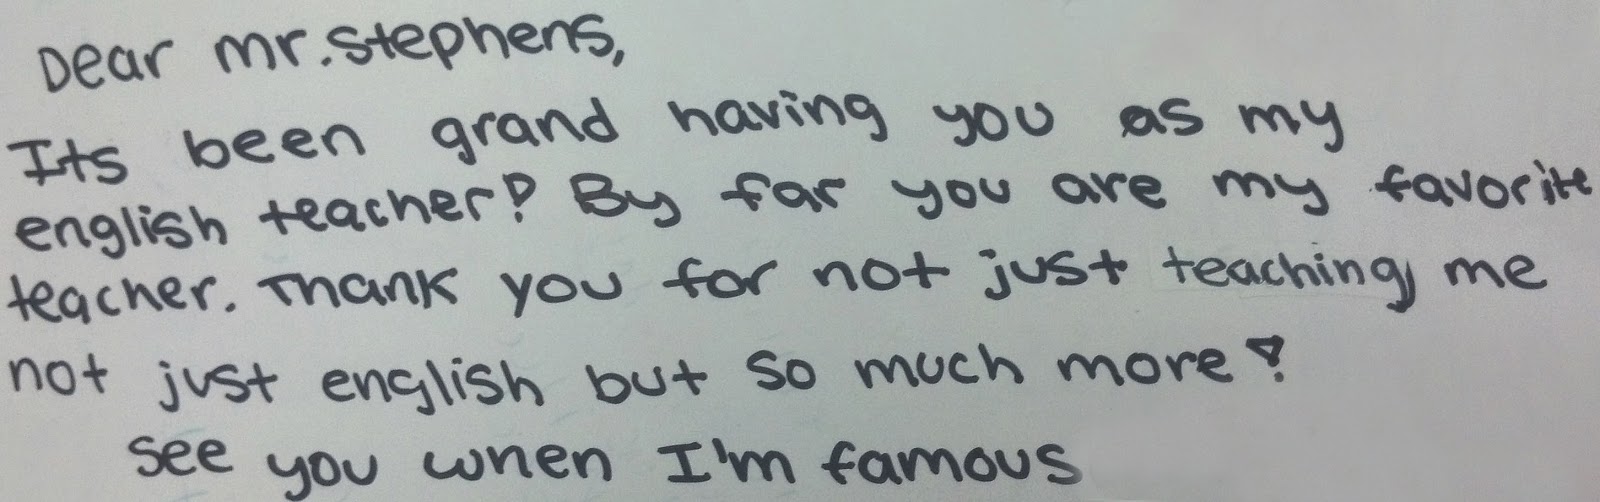 Dear mr. stephens,
Its been grand having you as my
english teacher! By far you are my favorite
teacher. Thank you for not just teaching me
not just english but so much more!
see you when I'm famous